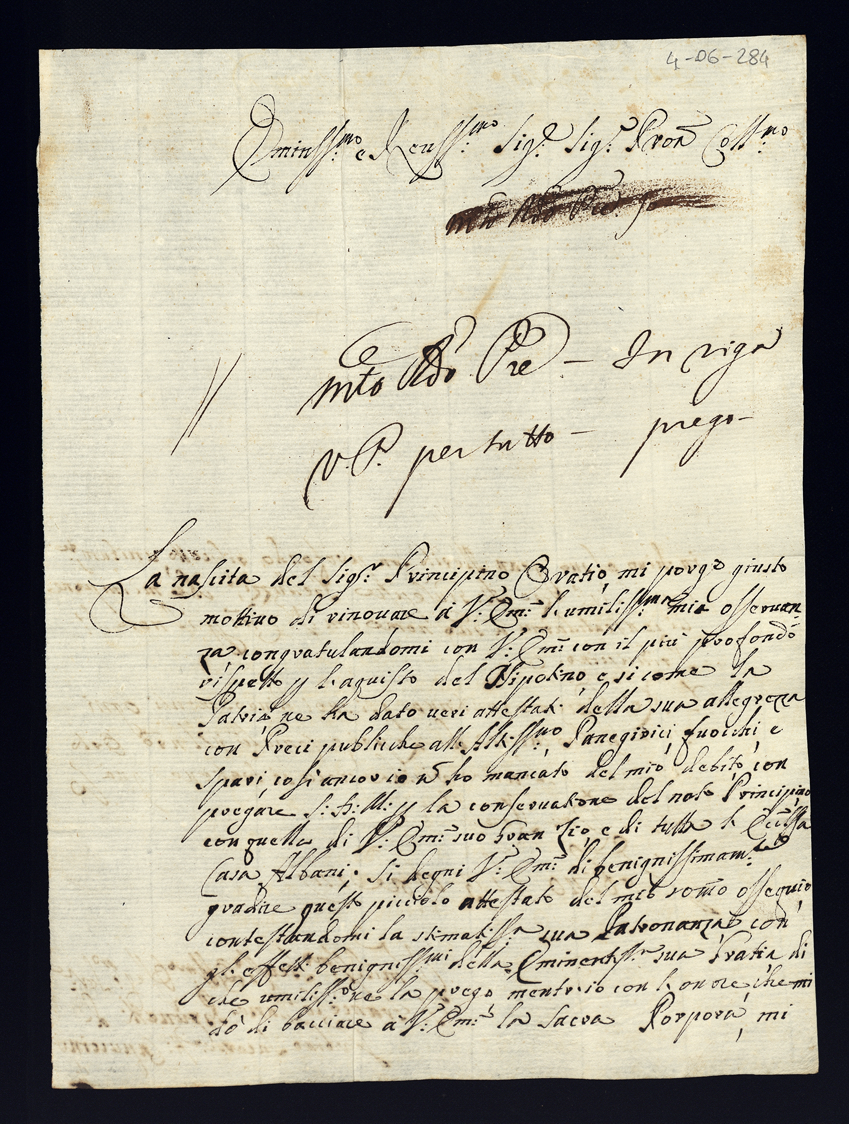 4-06-284
Eminss:mo e Reuss:mo Sig.r Sig.r Pron Coll:mo
Mto Rdo Pre — In riga
V. P. per tutto — prego-
La nascita del Sig.r Principino Oratio, mi porge giusto
mottiuo di rinouare a V: Em: l'umiliss:ma mia osseruan,
za congratulandomi con V: Em: con il più profondo
rispetto p l'aquisto del Nipotino e si come la
Patria ne ha dato ueri attestati della sua allegrezza
con Preci publiche all'Altiss:mo Panegirici fuochi e
spari cosi ancor io n ho mancato del mio debito, con
pregare S: D: M: p la conseruatione del nato Principino
con quella di V: Em: suo Gran Zio, e di tutta l'
Casa Albani. Si degni V: Em: di benignissimam:te
gradire questo piccolo attestato del mio ossequio
contestandomi la stimatiss:a sua Patronanza con
gl'effetti benigniss:mi della Eminentss:a sua Gratia di
che umiliss:te ne la prego mentre io con l'onore, che mi
dò di bacciare a V: Em: la Sacra Porpora, mi